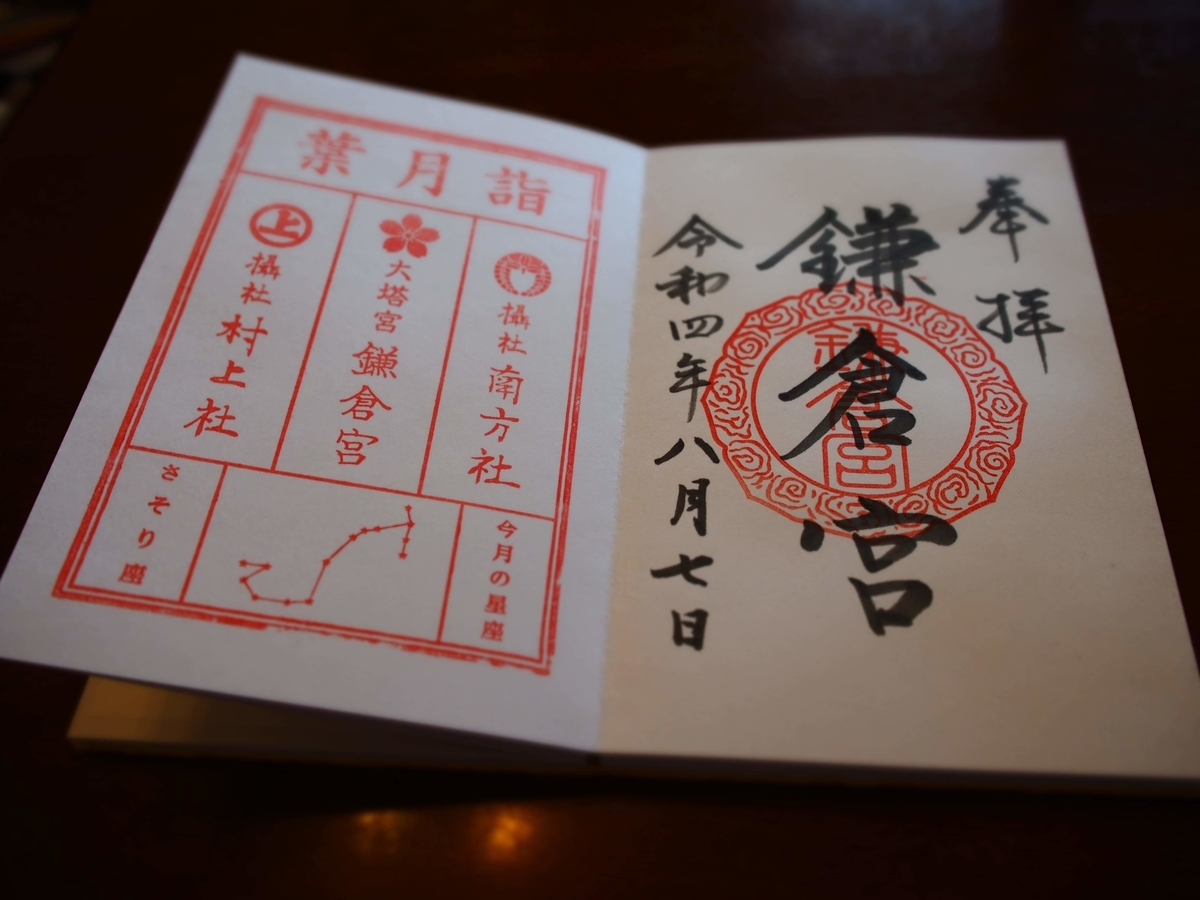 奉拝
鎌倉宮
令和四年八月七日
鎌倉宮
葉月詣
攝社 南方社
大塔宮 鎌倉宮
上
攝社 村上社
今月の星座
さそり座